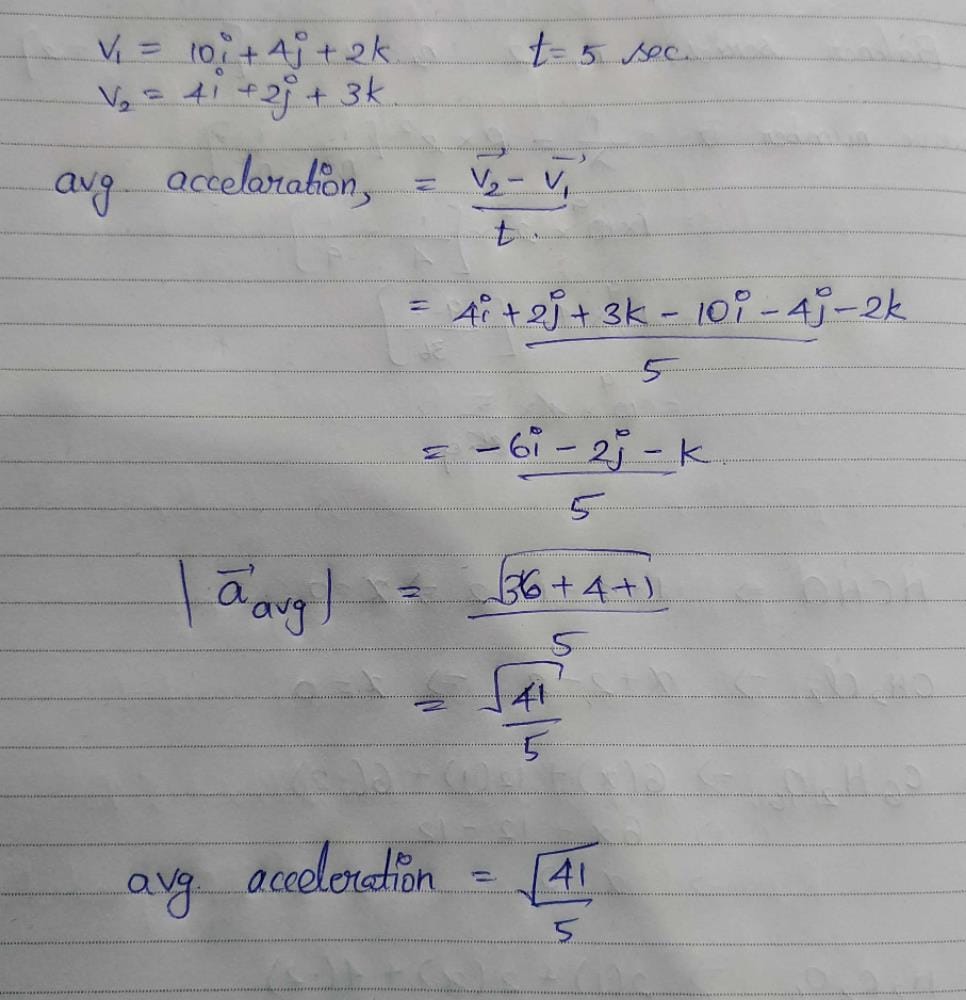 V₁ = 10i + 4j + 2k t = 5 sec.
V₂ = 4i + 2j + 3k
avg. accelaration, = (V₂⃗ - V₁⃗) / t.
= (4i + 2j + 3k - 10i - 4j - 2k) / 5
= (-6i - 2j - k) / 5
|a⃗ avg| = √(36 + 4 + 1) / 5
= √41 / 5
avg. acceleration = √41 / 5